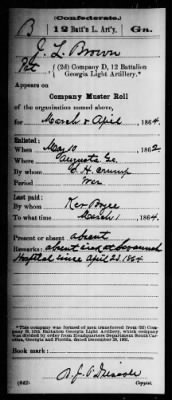 (Confederate.)
B 12 Batt'n L. Art'y. Ga.
J. L. Brown
Pvt (2d) Company D, 12 Battalion
Georgia Light Artillery.*
Appears on
Company Muster Roll
of the organization named above,
for March & April, 1864.
Enlisted:
When May 10, 1862
Where Augusta Ga.
By whom C. H. Crump
Period War
Last paid:
By whom Ker Boyce
To what time March 1, 1864.
Present or absent absent
Remarks: absent sick at Savannah
Hospital since April 23. 1864
*This company was formed of men transferred from (2d) Company
Book mark:
(642) Copyist.